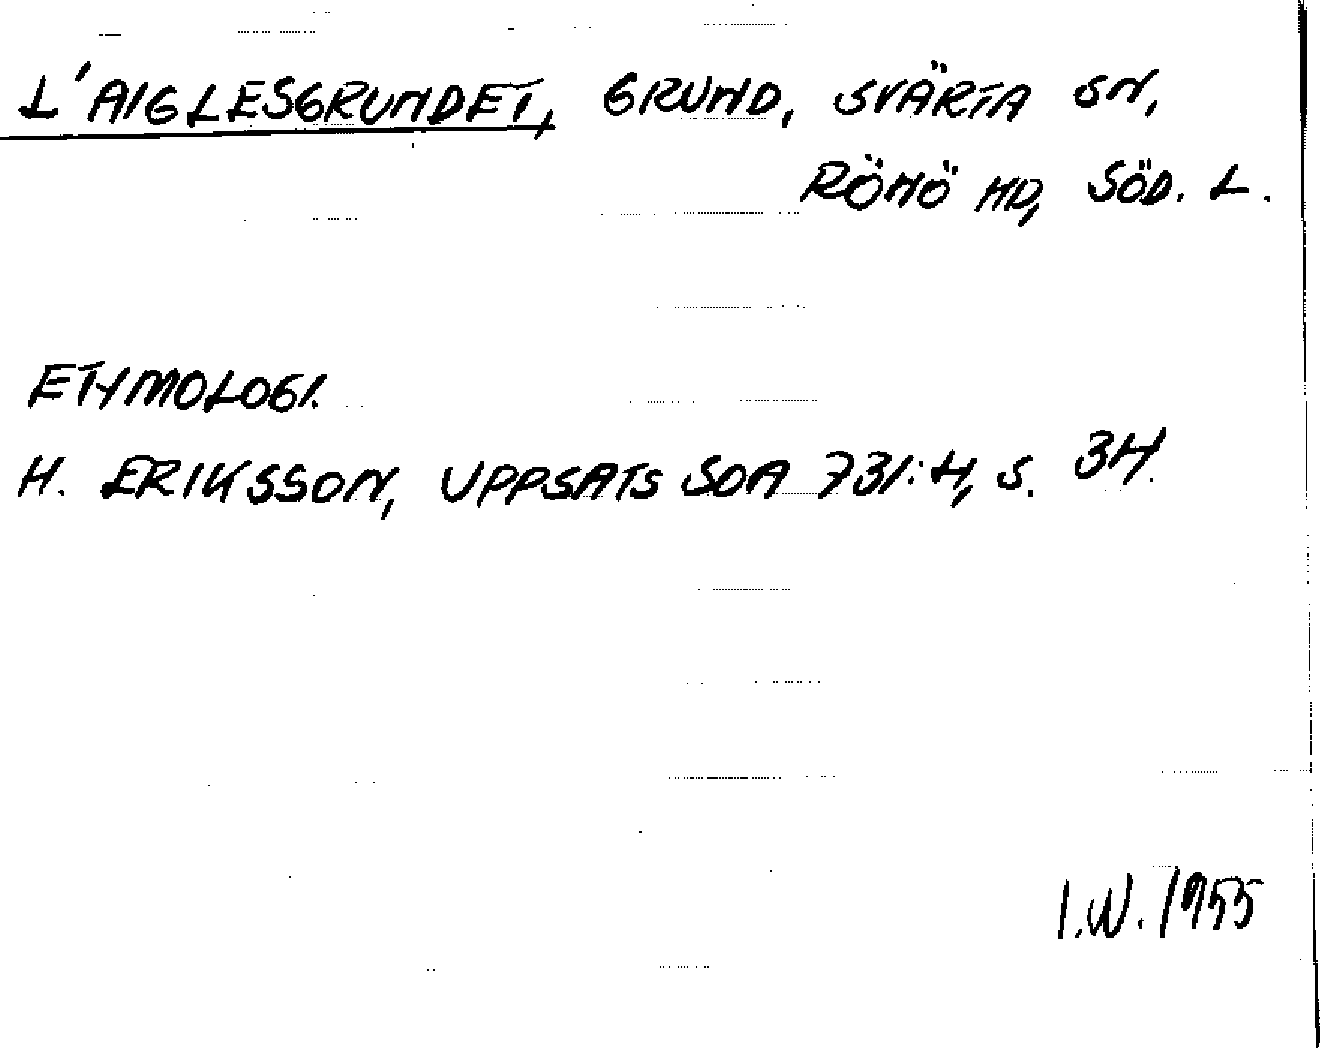 L'AIGLESGRUNDET, GRUND, SVÄRTA SN,
RÖNÖ HD, SÖD. L.
ETYMOLOGI.
H. ERIKSSON, UPPSATS SOA 731:4, S. 34.
I.W. 1955